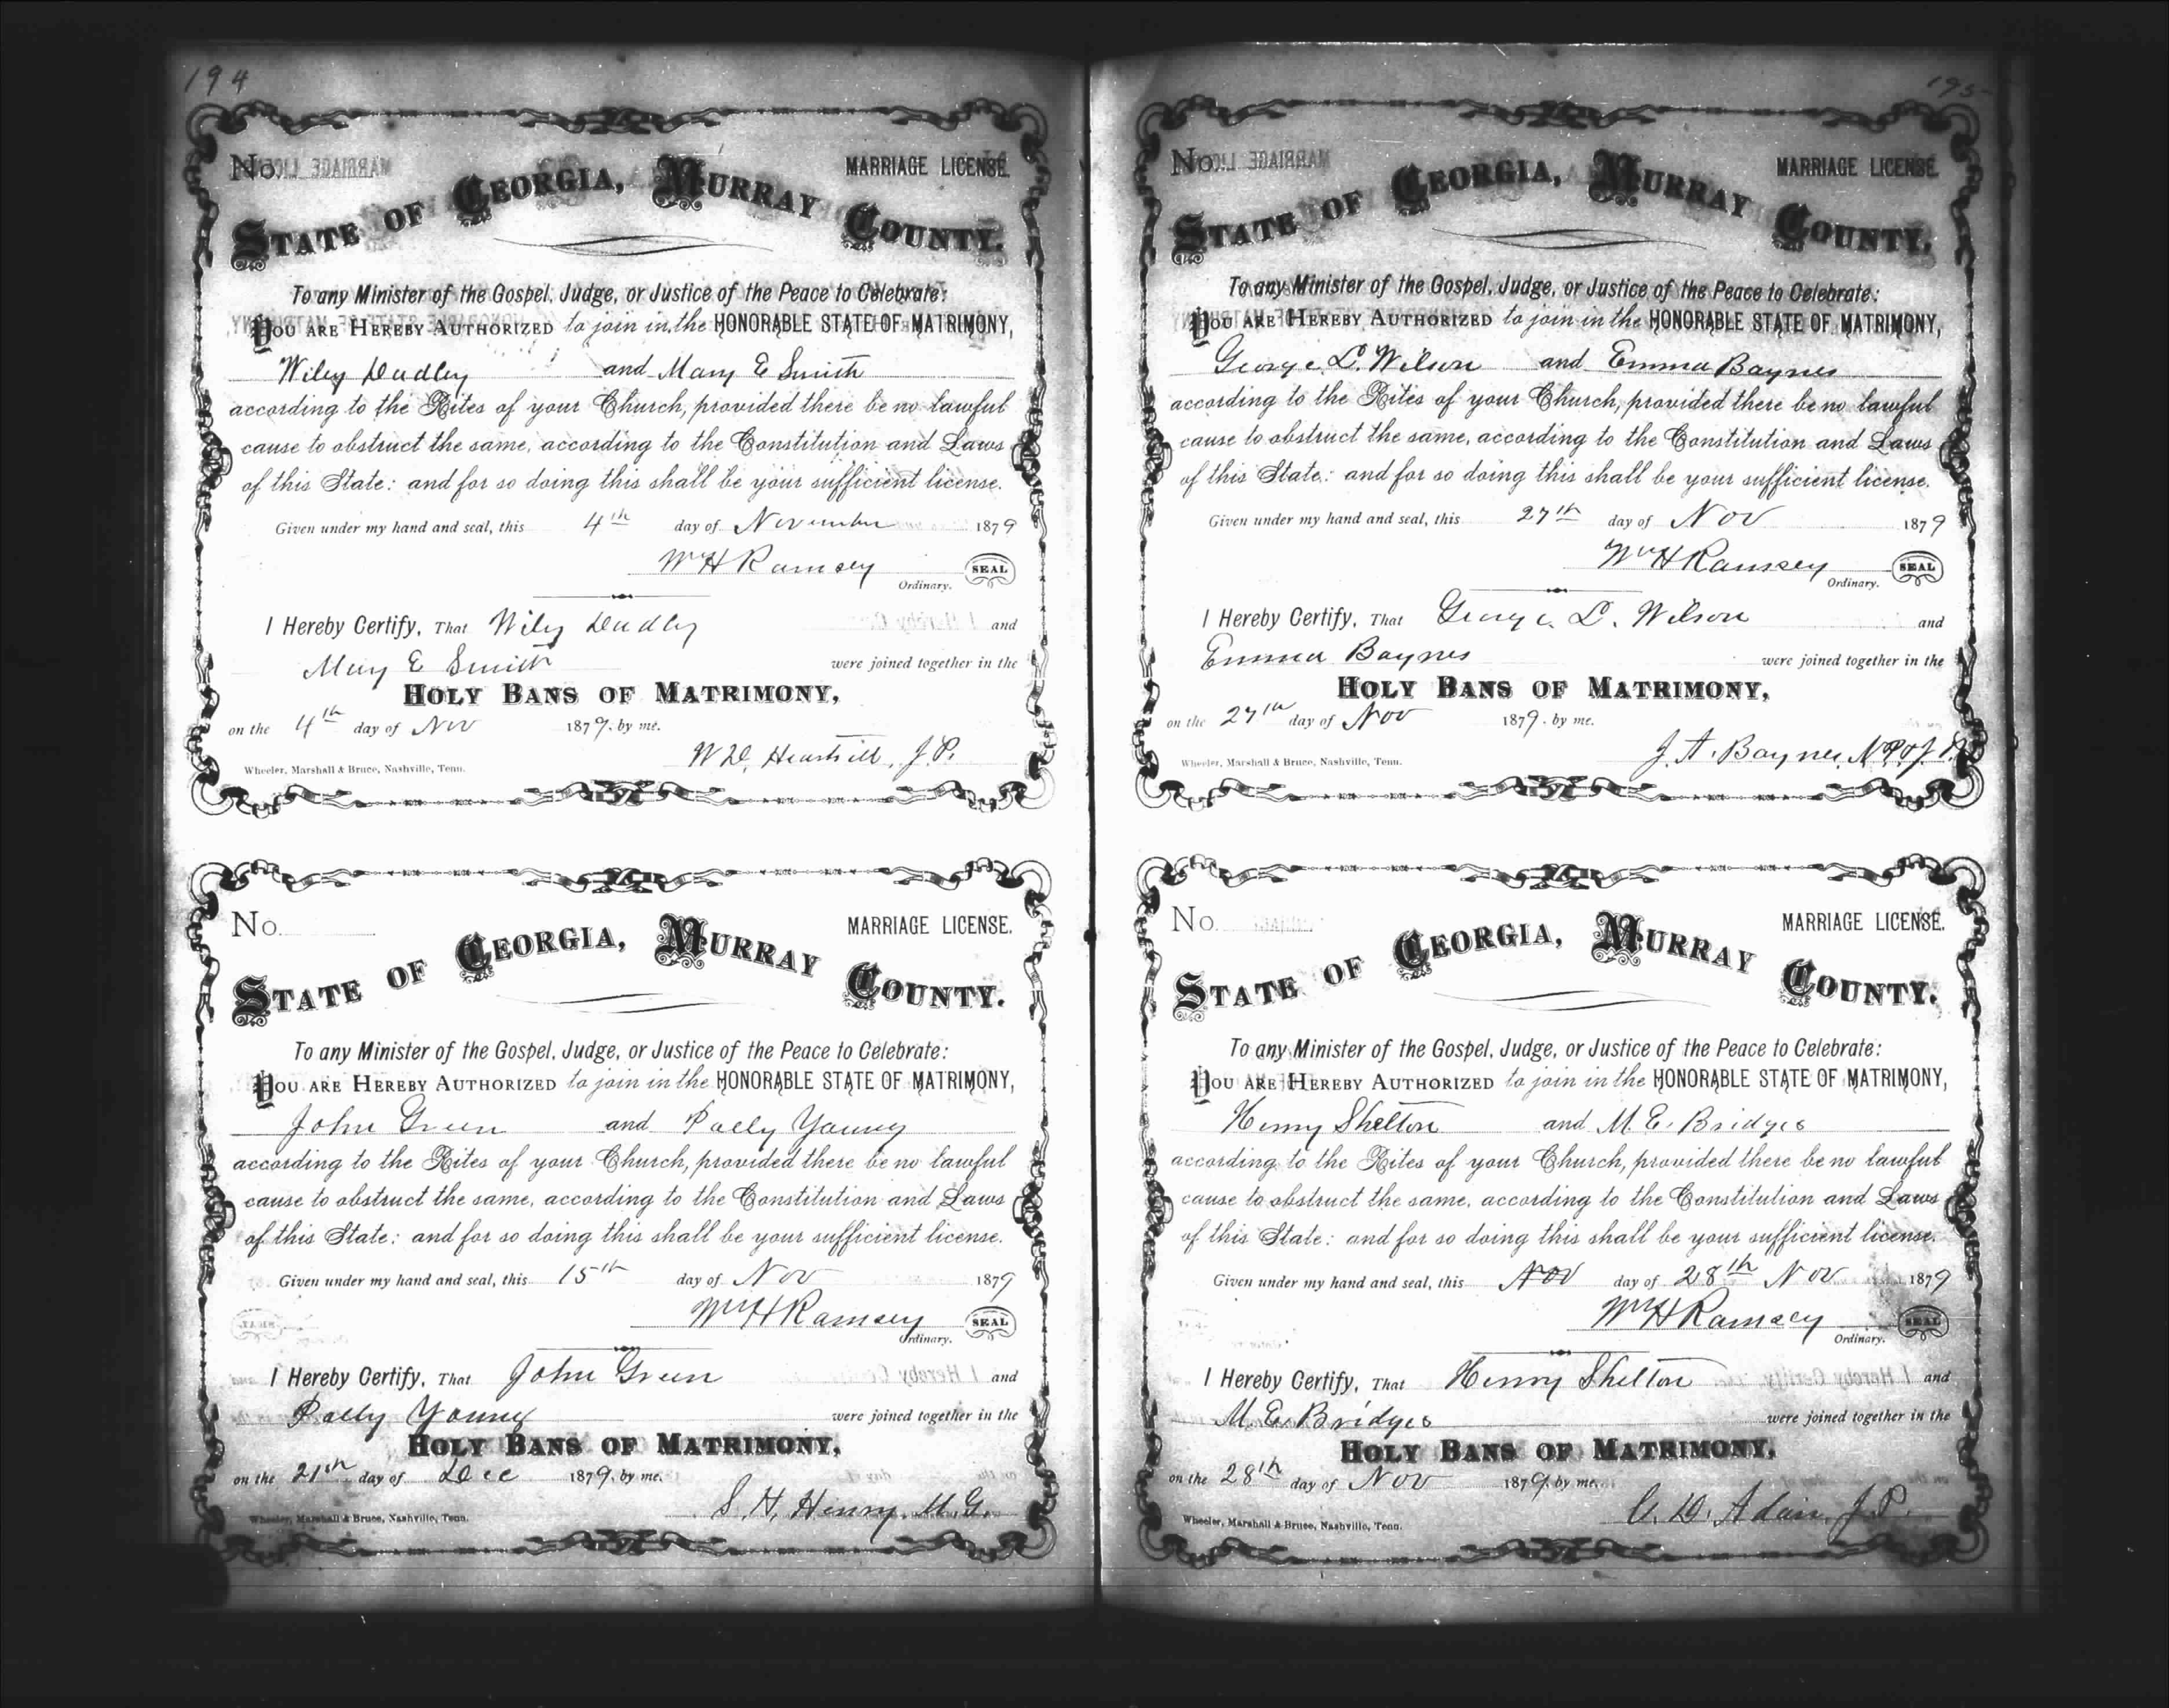 194
No. MARRIAGE LICENSE.
STATE OF GEORGIA, MURRAY COUNTY.
To any Minister of the Gospel, Judge, or Justice of the Peace to Celebrate:
YOU ARE HEREBY AUTHORIZED to join in the HONORABLE STATE OF MATRIMONY,
Wiley Dudley and Mary E Smith
according to the Rites of your Church, provided there be no lawful
cause to obstruct the same, according to the Constitution and Laws
of this State: and for so doing this shall be your sufficient license.
Given under my hand and seal, this 4th day of November 1879
Wm H Ramsey SEAL
Ordinary.
I Hereby Certify, That Wiley Dudley and
Mary E Smith were joined together in the
HOLY BANS OF MATRIMONY,
on the 4th day of Nov 1879, by me.
W D, J.P.
Wheeler, Marshall & Bruce, Nashville, Tenn.
No. MARRIAGE LICENSE.
STATE OF GEORGIA, MURRAY COUNTY.
To any Minister of the Gospel, Judge, or Justice of the Peace to Celebrate:
YOU ARE HEREBY AUTHORIZED to join in the HONORABLE STATE OF MATRIMONY,
John Green and Polly Young
according to the Rites of your Church, provided there be no lawful
cause to obstruct the same, according to the Constitution and Laws
of this State: and for so doing this shall be your sufficient license.
Given under my hand and seal, this 15th day of Nov 1879
Wm H Ramsey SEAL
Ordinary.
I Hereby Certify, That John Green and
Polly Young were joined together in the
HOLY BANS OF MATRIMONY,
on the 21st day of Dec 1879, by me.
S. H. Henry, M.G.
Wheeler, Marshall & Bruce, Nashville, Tenn.
195
No. MARRIAGE LICENSE.
STATE OF GEORGIA, MURRAY COUNTY.
To any Minister of the Gospel, Judge, or Justice of the Peace to Celebrate:
YOU ARE HEREBY AUTHORIZED to join in the HONORABLE STATE OF MATRIMONY,
George L. Wilson and Emma Baynes
according to the Rites of your Church, provided there be no lawful
cause to obstruct the same, according to the Constitution and Laws
of this State: and for so doing this shall be your sufficient license.
Given under my hand and seal, this 27th day of Nov 1879
Wm H Ramsey SEAL
Ordinary.
I Hereby Certify, That George L. Wilson and
Emma Baynes were joined together in the
HOLY BANS OF MATRIMONY,
on the 27th day of Nov 1879, by me.
J. A. Baynes, N.P. & J.P.
Wheeler, Marshall & Bruce, Nashville, Tenn.
No. MARRIAGE LICENSE.
STATE OF GEORGIA, MURRAY COUNTY.
To any Minister of the Gospel, Judge, or Justice of the Peace to Celebrate:
YOU ARE HEREBY AUTHORIZED to join in the HONORABLE STATE OF MATRIMONY,
Henry Shelton and M. E. Bridges
according to the Rites of your Church, provided there be no lawful
cause to obstruct the same, according to the Constitution and Laws
of this State: and for so doing this shall be your sufficient license.
Given under my hand and seal, this Nov day of 28th Nov 1879
Wm H Ramsey SEAL
Ordinary.
I Hereby Certify, That Henry Shelton and
M. E. Bridges were joined together in the
HOLY BANS OF MATRIMONY,
on the 28th day of Nov 1879, by me.
D. Adair, J.P.
Wheeler, Marshall & Bruce, Nashville, Tenn.